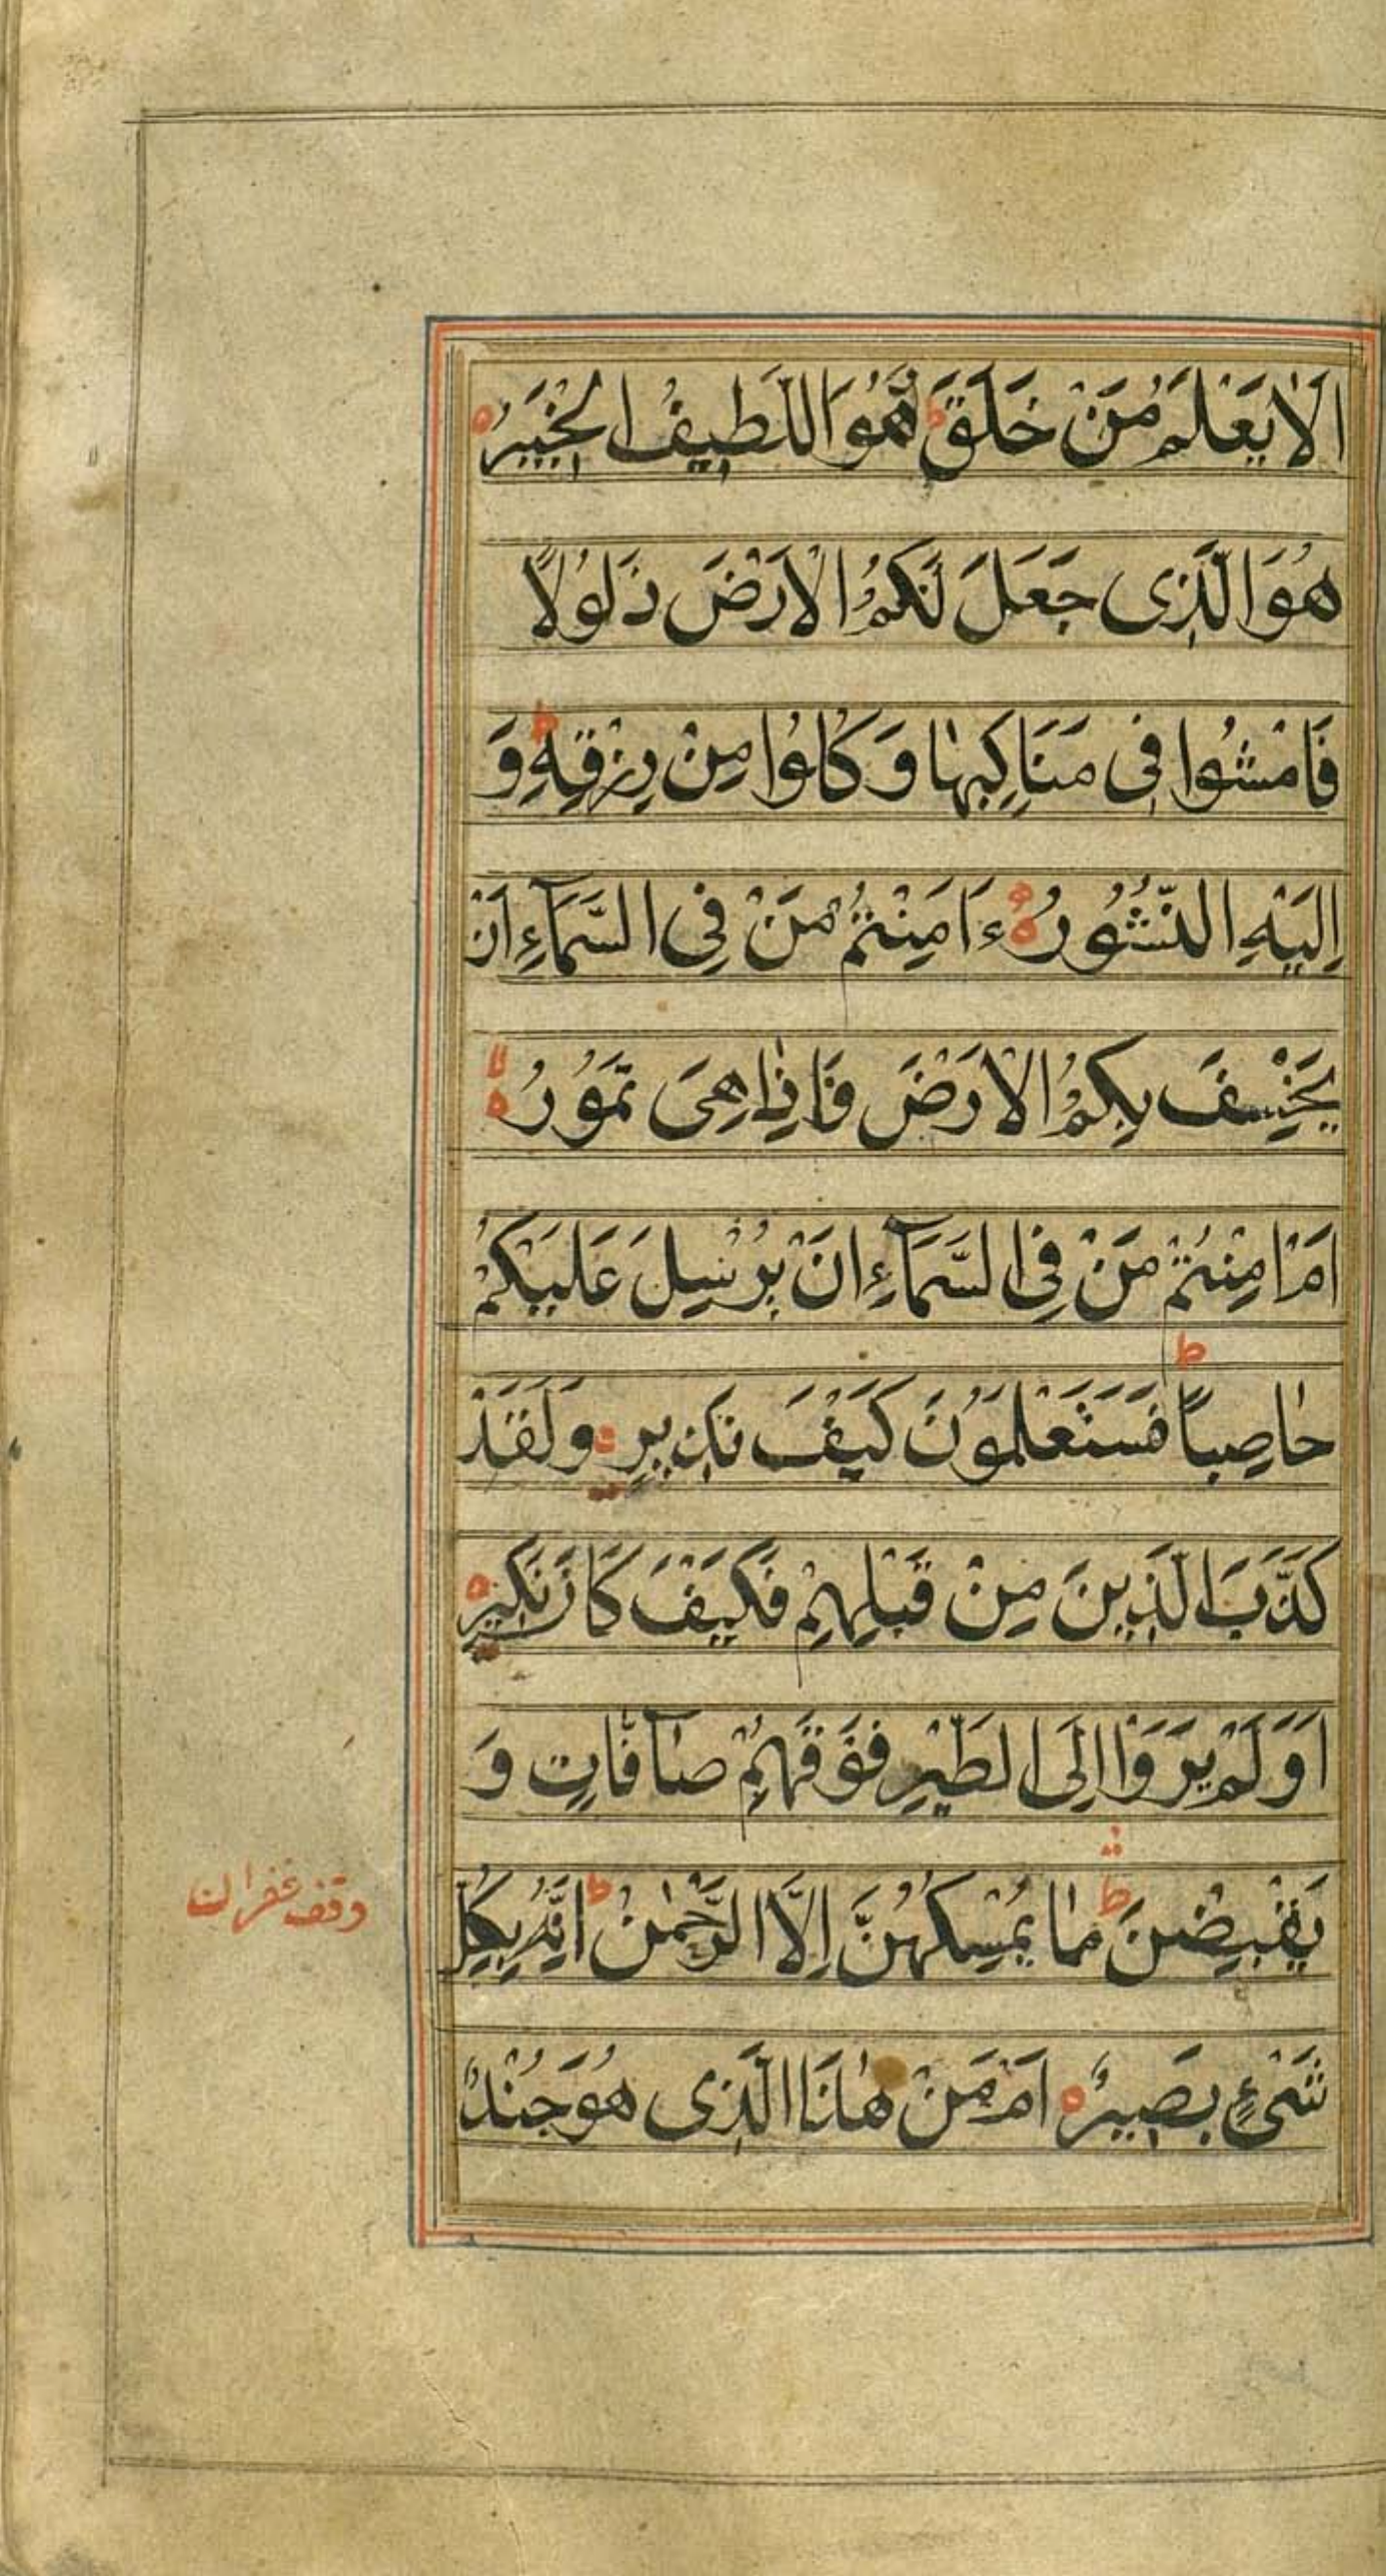 اَلَا يَعْلَمُ مَنْ خَلَقَ ط وَهُوَ اللَّطِيفُ الْخَبِيرُ ه
هُوَ الَّذِى جَعَلَ لَكُمُ الْاَرْضَ ذَلُولًا
فَامْشُوا فِى مَنَاكِبِهَا وَكُلُوا مِنْ رِزْقِهِ ط وَ
اِلَيْهِ النُّشُورُ ه ءَاَمِنْتُمْ مَنْ فِى السَّمَآءِ اَنْ
يَخْسِفَ بِكُمُ الْاَرْضَ فَاِذَا هِىَ تَمُورُ ه لا
اَمْ اَمِنْتُمْ مَنْ فِى السَّمَآءِ اَنْ يُرْسِلَ عَلَيْكُمْ
حَاصِبًا ط فَسَتَعْلَمُونَ كَيْفَ نَذِيرِ ه وَلَقَدْ
كَذَّبَ الَّذِينَ مِنْ قَبْلِهِمْ فَكَيْفَ كَانَ نَكِيرِ ه
اَوَلَمْ يَرَوْا اِلَى الطَّيْرِ فَوْقَهُمْ صَآفَّاتٍ وَ
يَقْبِضْنَ ط مَا يُمْسِكُهُنَّ اِلَّا الرَّحْمٰنُ ط اِنَّهُ بِكُلِّ
شَىْءٍ بَصِيرٌ ه اَمَّنْ هٰذَا الَّذِى هُوَ جُنْدٌ
وقف غفران